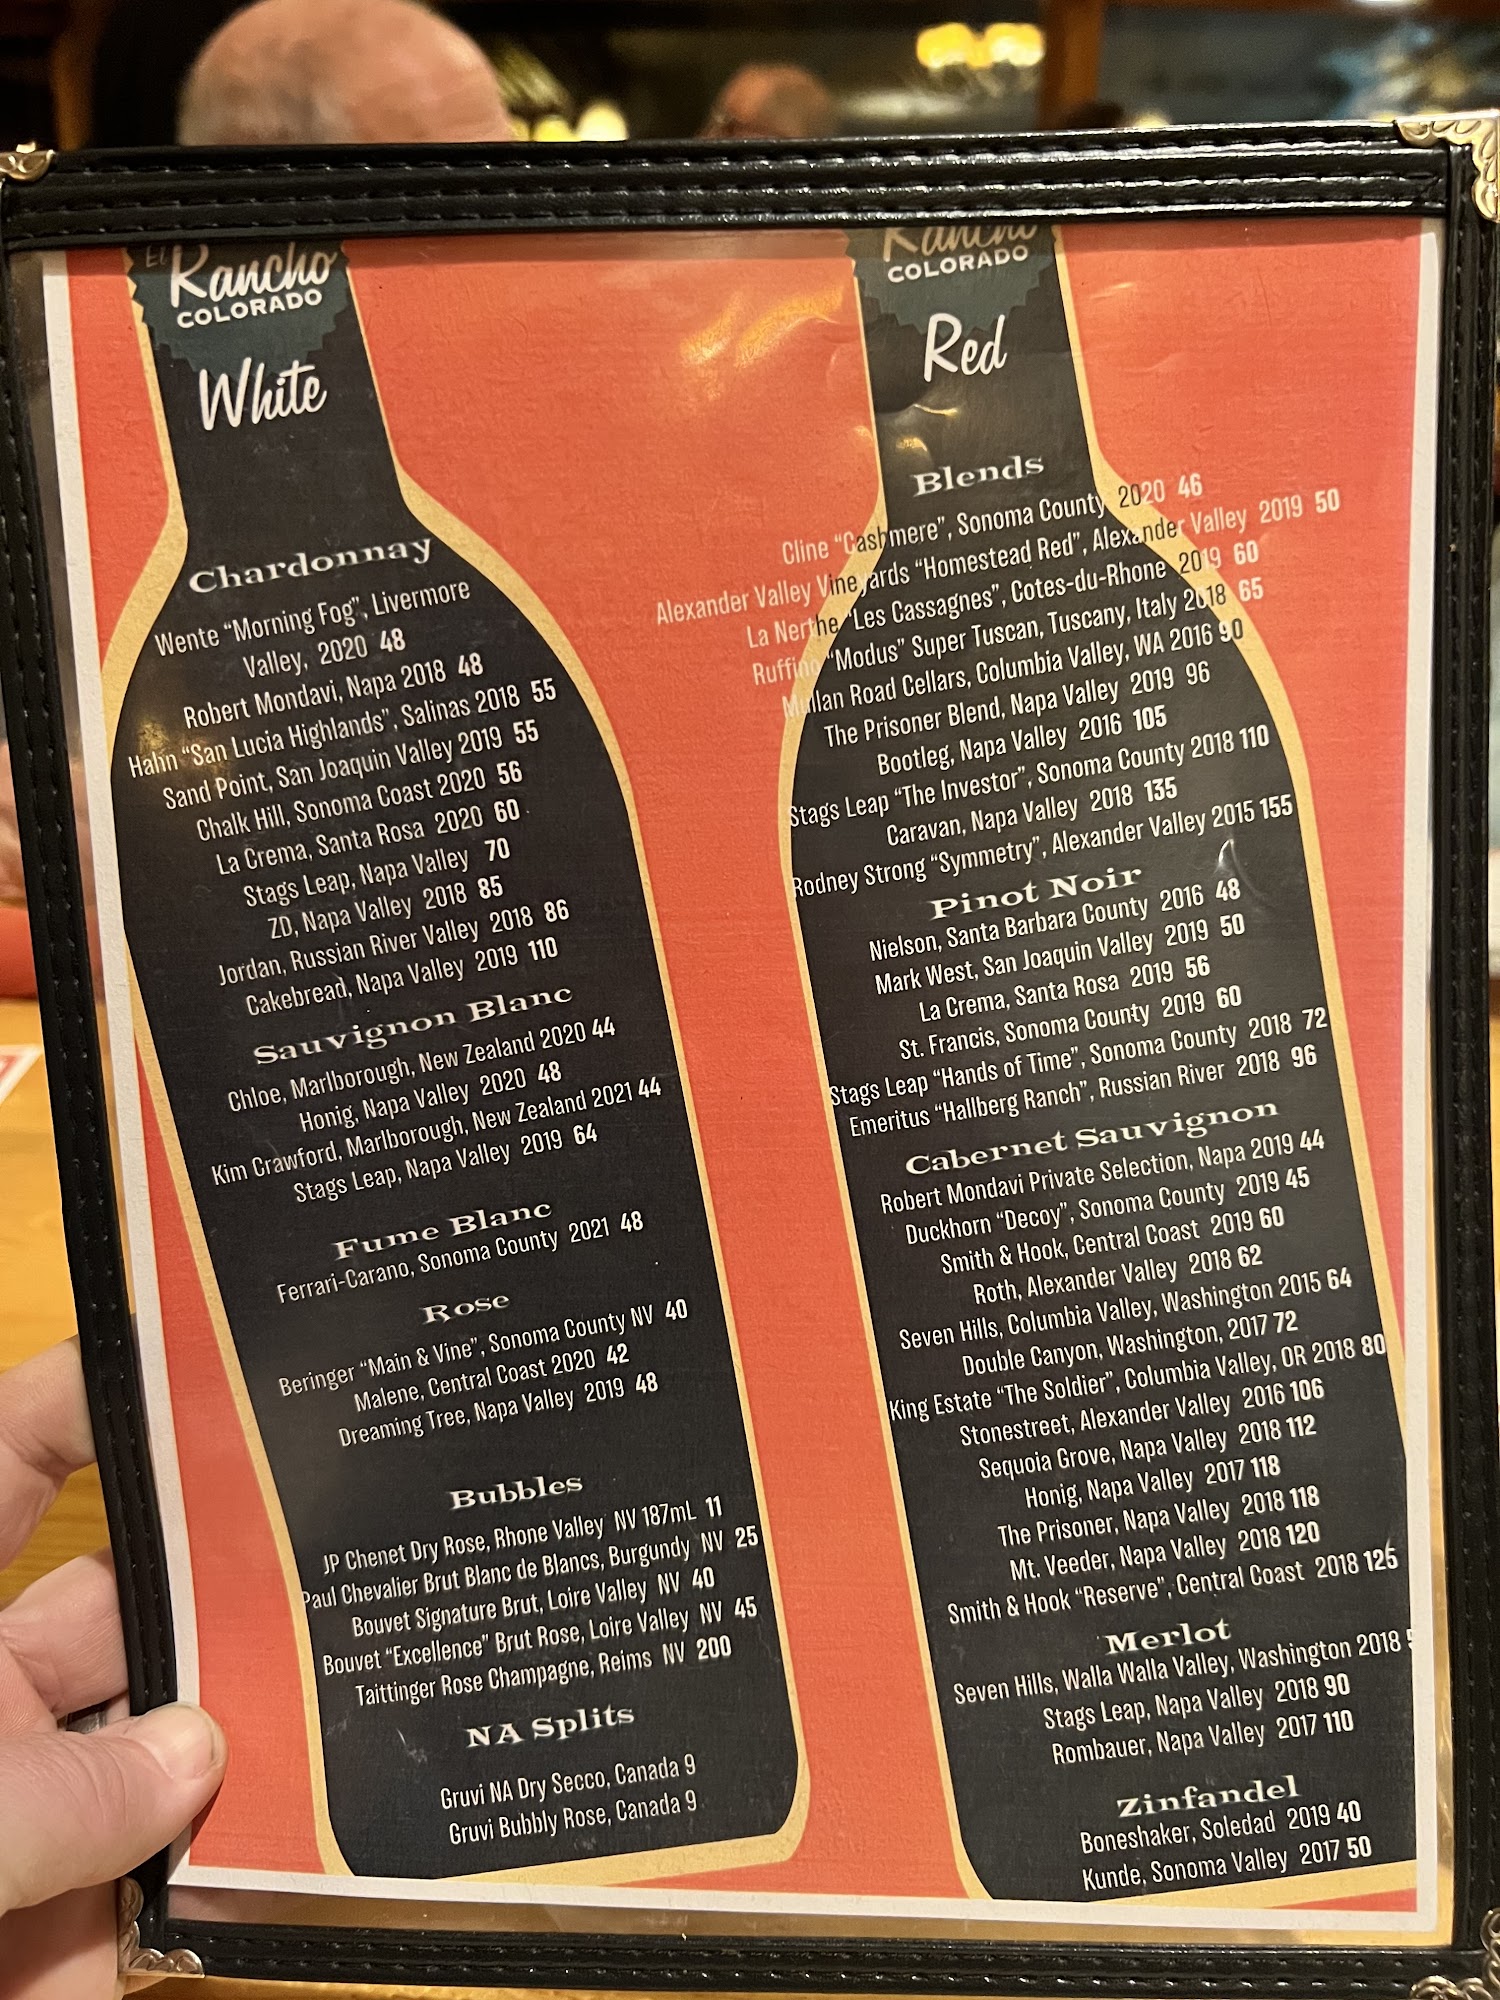 El
Rancho
COLORADO
White
Chardonnay
Wente “Morning Fog”, Livermore
Valley, 2020 48
Robert Mondavi, Napa 2018 48
Hahn “San Lucia Highlands”, Salinas 2018 55
Sand Point, San Joaquin Valley 2019 55
Chalk Hill, Sonoma Coast 2020 56
La Crema, Santa Rosa 2020 60
Stags Leap, Napa Valley 70
ZD, Napa Valley 2018 85
Jordan, Russian River Valley 2018 86
Cakebread, Napa Valley 2019 110
Sauvignon Blanc
Chloe, Marlborough, New Zealand 2020 44
Honig, Napa Valley 2020 48
Kim Crawford, Marlborough, New Zealand 2021 44
Stags Leap, Napa Valley 2019 64
Fume Blanc
Ferrari-Carano, Sonoma County 2021 48
Rose
Beringer “Main & Vine”, Sonoma County NV 40
Malene, Central Coast 2020 42
Dreaming Tree, Napa Valley 2019 48
Bubbles
JP Chenet Dry Rose, Rhone Valley NV 187mL 11
Paul Chevalier Brut Blanc de Blancs, Burgundy NV 25
Bouvet Signature Brut, Loire Valley NV 40
Bouvet “Excellence” Brut Rose, Loire Valley NV 45
Taittinger Rose Champagne, Reims NV 200
NA Splits
Gruvi NA Dry Secco, Canada 9
Gruvi Bubbly Rose, Canada 9
Rancho
COLORADO
Red
Blends
Cline “Cashmere”, Sonoma County 2020 46
Alexander Valley Vineyards “Homestead Red”, Alexander Valley 2019 50
La Nerthe “Les Cassagnes”, Cotes-du-Rhone 2019 60
Ruffino “Modus” Super Tuscan, Tuscany, Italy 2018 65
Mullan Road Cellars, Columbia Valley, WA 2016 90
The Prisoner Blend, Napa Valley 2019 96
Bootleg, Napa Valley 2016 105
Stags Leap “The Investor”, Sonoma County 2018 110
Caravan, Napa Valley 2018 135
Rodney Strong “Symmetry”, Alexander Valley 2015 155
Pinot Noir
Nielson, Santa Barbara County 2016 48
Mark West, San Joaquin Valley 2019 50
La Crema, Santa Rosa 2019 56
St. Francis, Sonoma County 2019 60
Stags Leap “Hands of Time”, Sonoma County 2018 72
Emeritus “Hallberg Ranch”, Russian River 2018 96
Cabernet Sauvignon
Robert Mondavi Private Selection, Napa 2019 44
Duckhorn “Decoy”, Sonoma County 2019 45
Smith & Hook, Central Coast 2019 60
Roth, Alexander Valley 2018 62
Seven Hills, Columbia Valley, Washington 2015 64
Double Canyon, Washington, 2017 72
King Estate “The Soldier”, Columbia Valley, OR 2018 80
Stonestreet, Alexander Valley 2016 106
Sequoia Grove, Napa Valley 2018 112
Honig, Napa Valley 2017 118
The Prisoner, Napa Valley 2018 118
Mt. Veeder, Napa Valley 2018 120
Smith & Hook “Reserve”, Central Coast 2018 125
Merlot
Seven Hills, Walla Walla Valley, Washington 2018
Stags Leap, Napa Valley 2018 90
Rombauer, Napa Valley 2017 110
Zinfandel
Boneshaker, Soledad 2019 40
Kunde, Sonoma Valley 2017 50